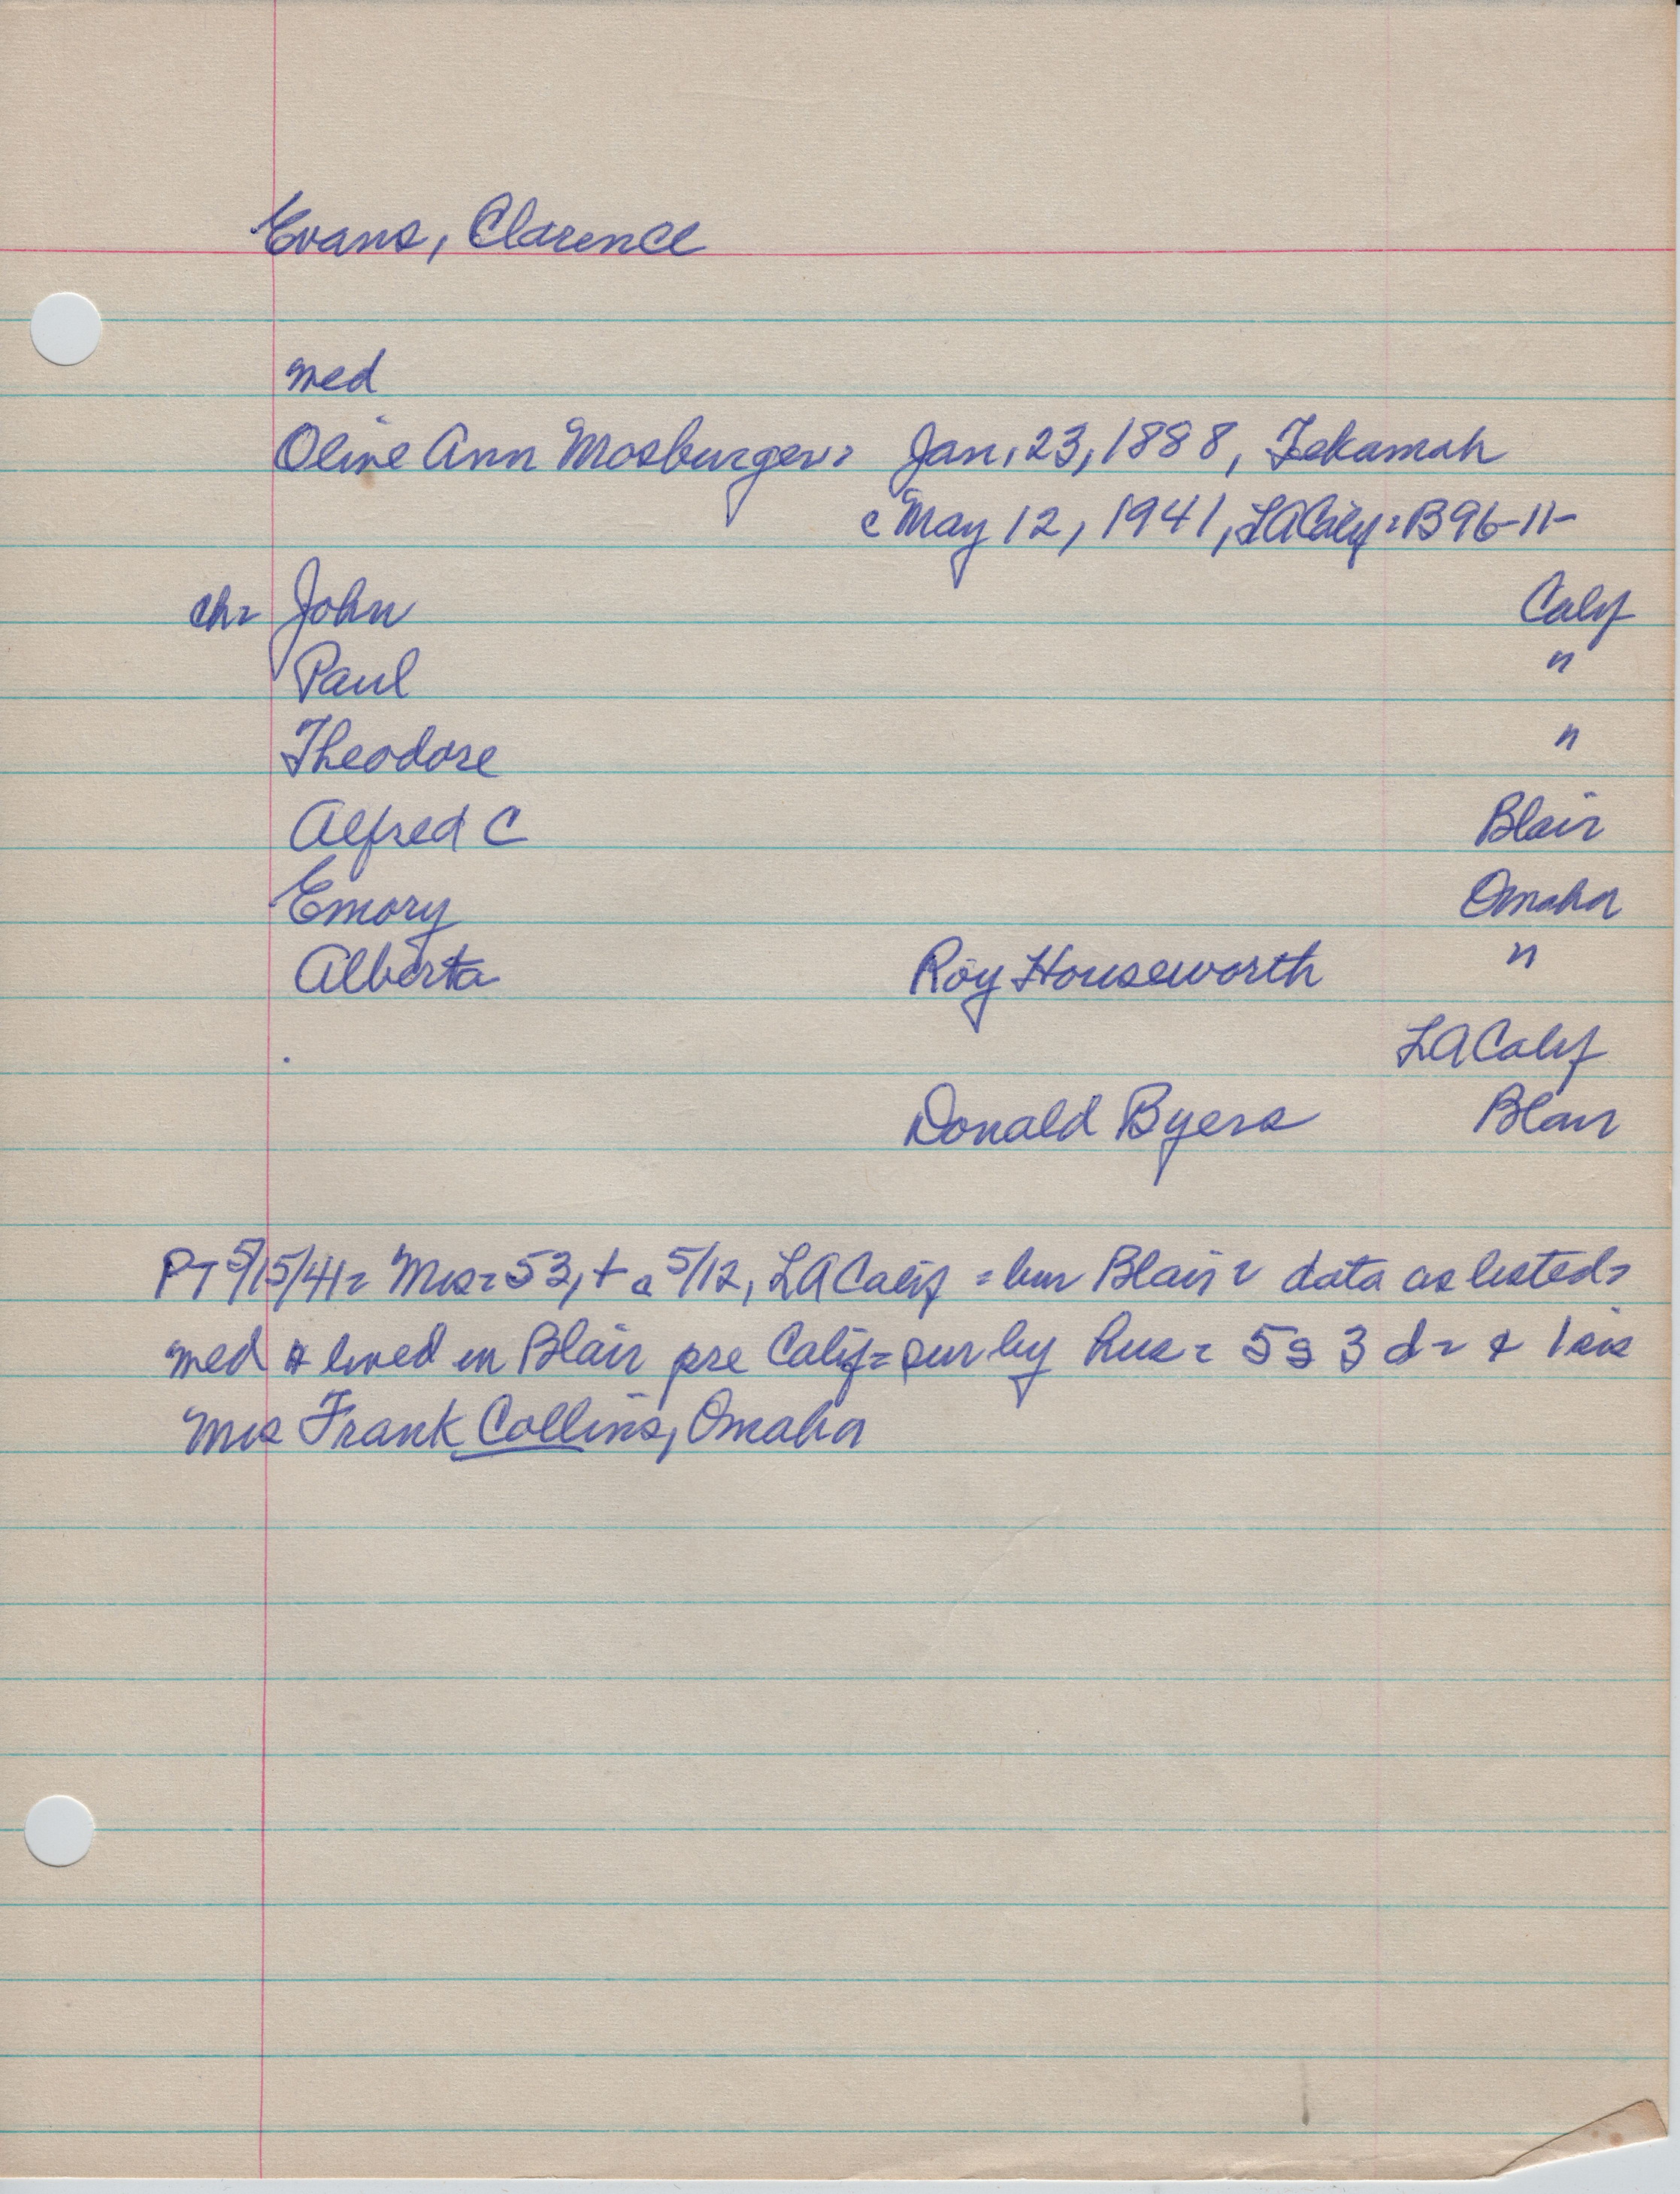 Evans, Clarence
med
Olive Ann Mosburger= Jan. 23, 1888, Tekamah
c May 12, 1941, LA Calif= B96-11-
ch= John Calif
Paul "
Theodore "
Alfred C Blair
Emory Omaha
Alberta Roy Houseworth "
LA Calif
Donald Byers Blair
PT 5/15/41= Mrs= 53, + a 5/12, LA Calif = bur Blair= data as listed=
med & lived in Blair pre Calif= sur by hus= 5s 3d= & 1 sis
Mrs Frank Collins, Omaha